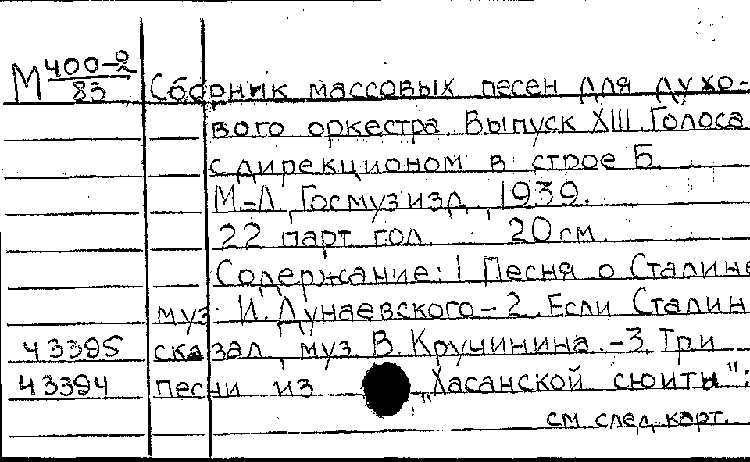 М 400-2/83 Сборник массовых песен для духо-
вого оркестра. Выпуск XIII. Голоса
с дирекционом в строе Б.
М-Л, Госмузизд, 1939.
22 парт гол. 20 см.
Содержание: 1 Песня о Сталине
муз. И. Дунаевского - 2. Если Сталин
43395 сказал, муз В. Кручинина. - 3. Три
43394 песни из „Хасанской сюиты":
см. след. карт.